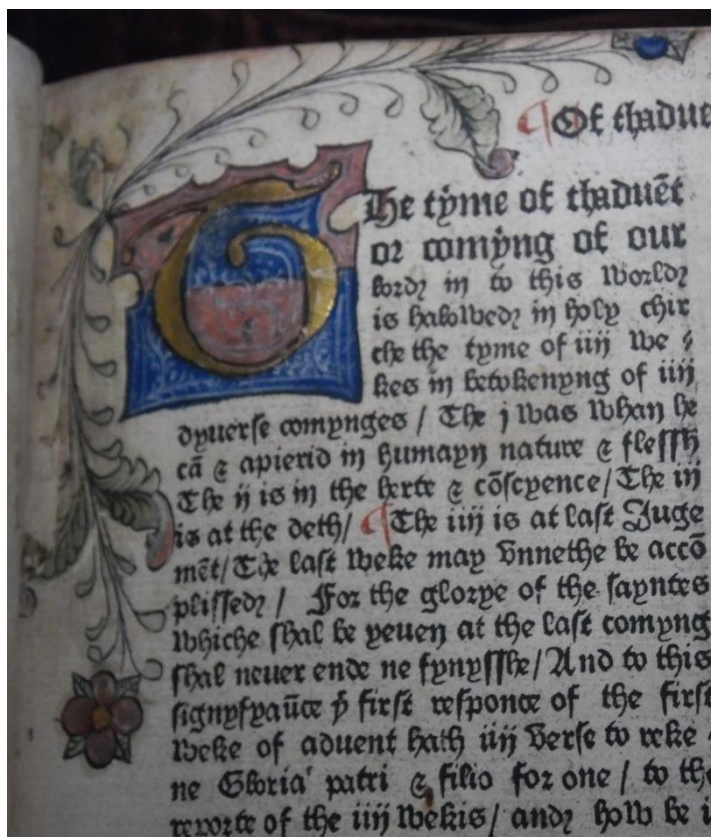 ¶ Of thadue
The tyme of thaduēt
or comyng of our
lord in to this world
is halowed in holy chir
che the tyme of iiij we
kes in betokenyng of iiij
dyuerse comynges / The j was whan he
cā & apierid in humayn nature & flessh
The ij is in the herte & cōscyence / The iij
is at the deth / ¶ The iiij is at last Iuge
mēt / The last weke may vnnethe be accō
plissed / For the glorye of the sayntes
whiche shal be yeuen at the last comyng
shal neuer ende ne fynysshe / And to this
signyfyaūce þe first responce of the first
weke of aduent hath iiij verse to reke
ne Gloria patri & filio for one / to the
reporte of the iiij wekis / and how be i